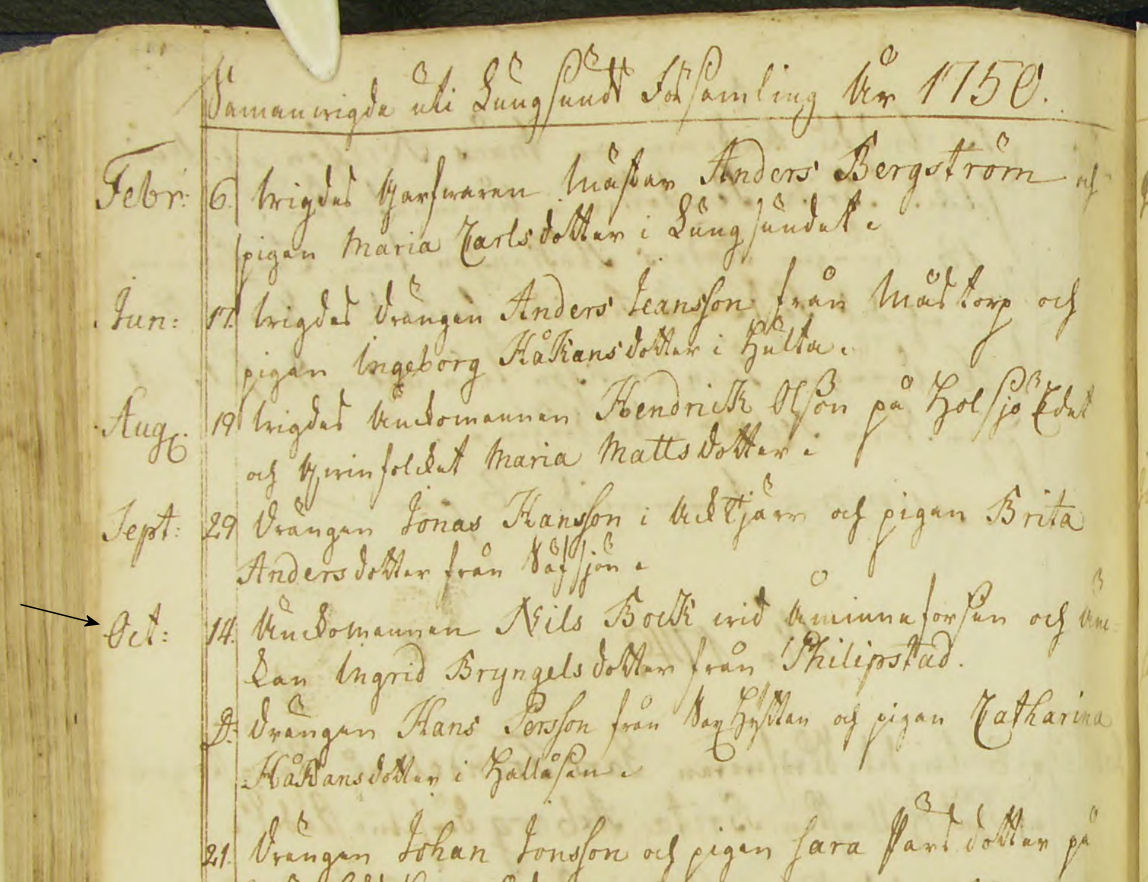 Samanwigde uti Lungsunds Församling År 1750.
Febr: 6. wigdes Garfwaren Mäster Anders Bergström och
pigan Maria Carlsdotter i Lungsundet.
Jun: 17. wigdes drängen Anders Jeansson från Mästorp och
pigan Ingeborg Håkansdotter i Hulta.
Aug. 19 wigdes Änckomannen Hendrick Olson på Holsjö Edet
och Qwinfolcket Maria Mattsdotter.
Sept: 29 Drängen Jonas Hansson i Acktjärn och pigan Brita
Andersdotter från Näfsjön.
Oct: 14. Änckomannen Nils Bock wid Aminneforsen och Änc-
kan Ingrid Bryngelsdotter från Philipstad.
D: Drängen Hans Persson från SaxHyttan och pigan Catharina
Håkansdotter i Hallåsen.
21. Drängen Johan Jonsson och pigan Sara Pärsdotter på